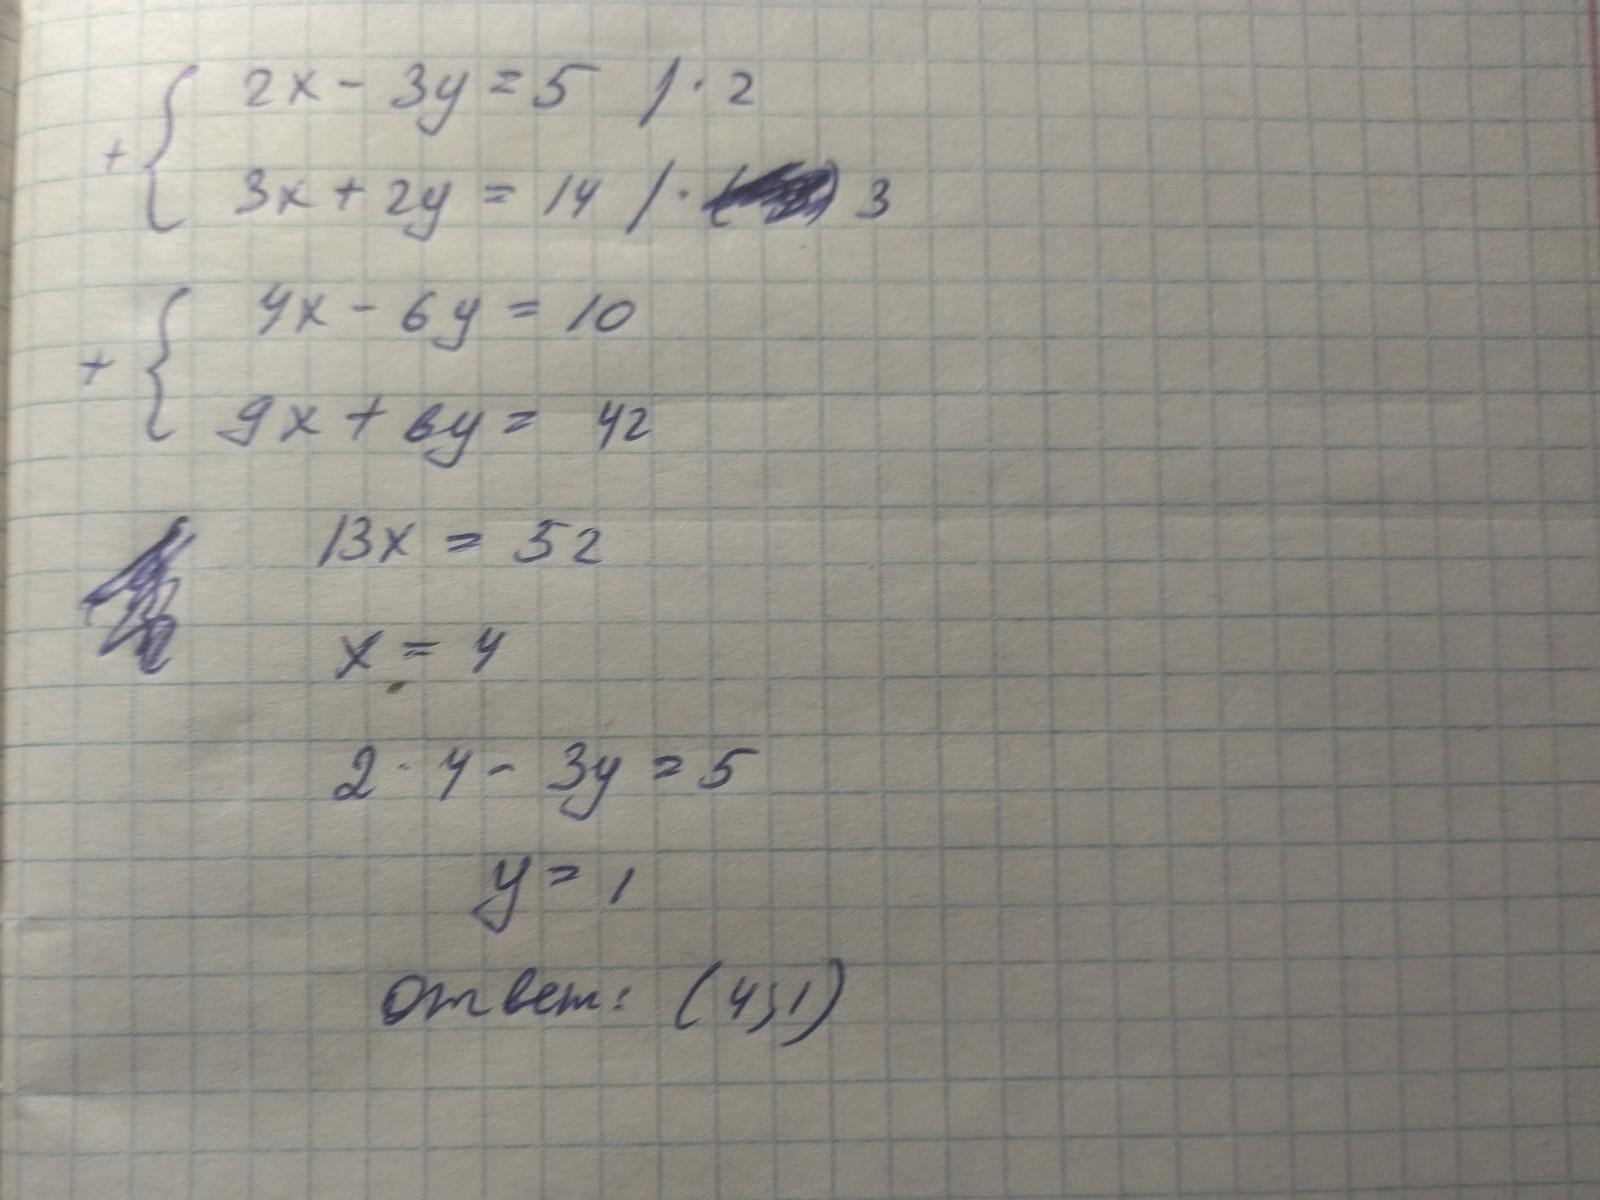 + { 2x - 3y = 5 / · 2
3x + 2y = 14 / · 3
+ { 4x - 6y = 10
9x + 6y = 42
13x = 52
x = 4
2 · 4 - 3y = 5
y = 1
Ответ: (4;1)